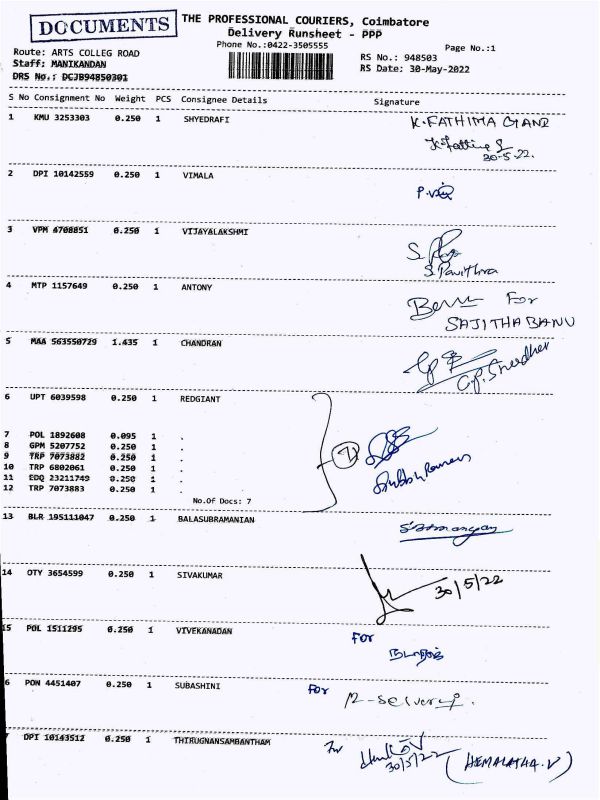 DOCUMENTS
THE PROFESSIONAL COURIERS, Coimbatore
Delivery Runsheet - PPP
Phone No.:0422-3505555
Page No.:1
Route: ARTS COLLEG ROAD
Staff: MANIKANDAN
DRS No.: DCJB94850301
RS No.: 948503
RS Date: 30-May-2022
S No Consignment No Weight PCS Consignee Details Signature
1 KMU 3253303 0.250 1 SHYEDRAFI
K.FATHIMA
30-5-22.
2 DPI 10142559 0.250 1 VIMALA
3 VPM 4708851 0.250 1 VIJAYALAKSHMI
S. Pavithra
4 MTP 1157649 0.250 1 ANTONY
For
SAJITHA BANU
5 MAA 563550729 1.435 1 CHANDRAN
C.P. Sreedher
6 UPT 6039598 0.250 1 REDGIANT
7 POL 1892608 0.095 1 .
8 GPM 5207752 0.250 1 .
9 TRP 7073882 0.250 1 .
10 TRP 6802061 0.250 1 .
11 EDQ 23211749 0.250 1 .
12 TRP 7073883 0.250 1 .
7
No.Of Docs: 7
13 BLR 195111047 0.250 1 BALASUBRAMANIAN
14 OTY 3654599 0.250 1 SIVAKUMAR
30/5/22
15 POL 1511295 0.250 1 VIVEKANADAN
For
6 PON 4451407 0.250 1 SUBASHINI
For
7 DPI 10143512 0.250 1 THIRUGNANSAMBANTHAM
For
30/5/22 (HEMALATHA.V)